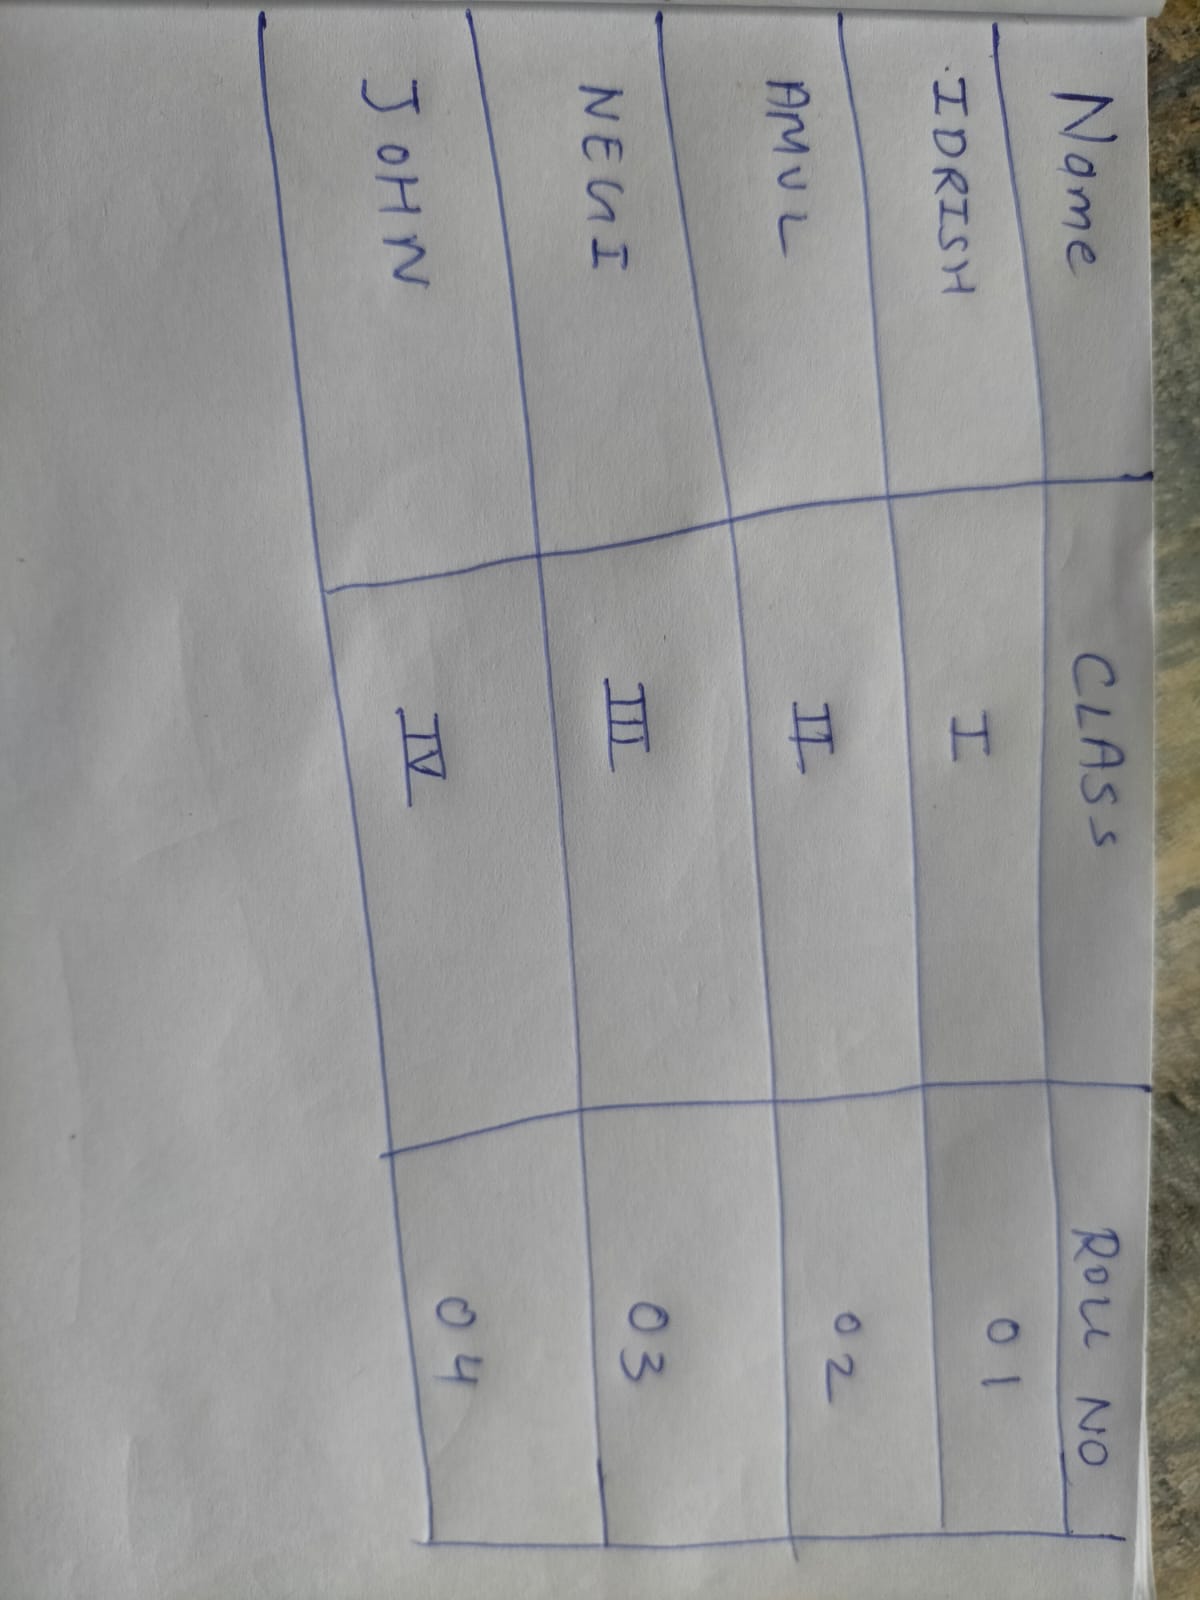 Name CLASS ROLL NO
IDRISH I 01
AMUL II 02
NEGI III 03
JOHN IV 04